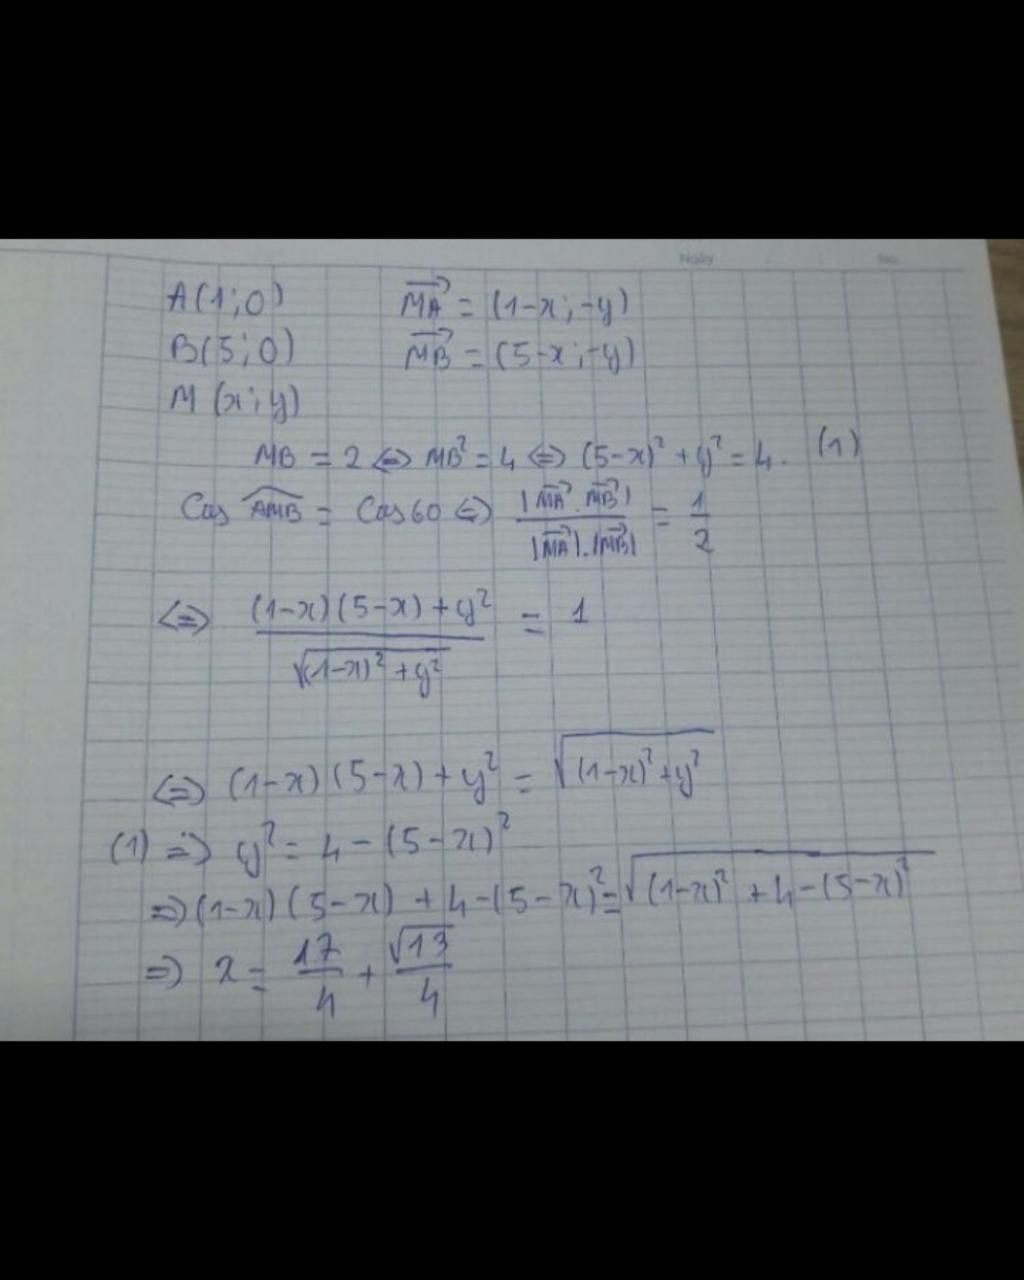 Ngày No.
A(1;0) $\overrightarrow{MA}$ = (1-x;-y)
B(5;0) $\overrightarrow{MB}$ = (5-x;-y)
M(x;y)
MB = 2 ⇔ MB² = 4 ⇔ (5-x)² + y² = 4. (1)
Cos $\widehat{AMB}$ = Cos60 ⇔ $\frac{|\overrightarrow{MA}.\overrightarrow{MB}|}{|\overrightarrow{MA}|.|\overrightarrow{MB}|} = \frac{1}{2}$
⇔ $\frac{(1-x)(5-x)+y^2}{\sqrt{(1-x)^2+y^2}} = 1$
⇔ (1-x)(5-x) + y² = $\sqrt{(1-x)^2+y^2}$
(1) ⇒ y² = 4 - (5-x)²
⇒ (1-x)(5-x) + 4-(5-x)² = $\sqrt{(1-x)^2+4-(5-x)^2}$
⇒ x = $\frac{17}{4} + \frac{\sqrt{13}}{4}$